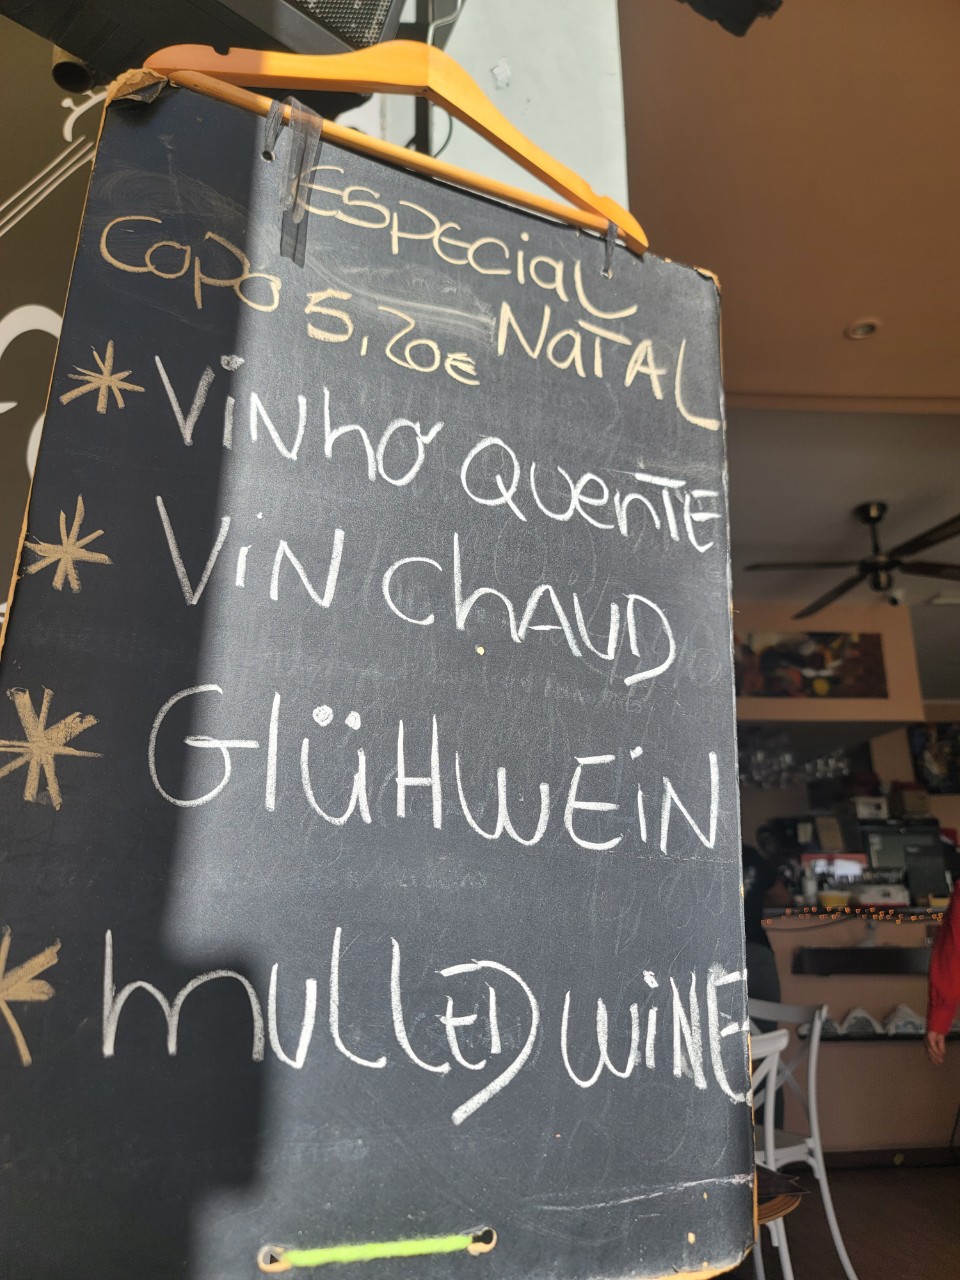 ESPECiaL
NaTAL
Copo 5,20€
* ViNho QuenTE
* ViN ChAUD
* GlüHwEiN
* mulLED WiNE